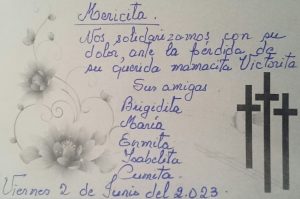 Mericita.
Nos solidarizamos con su
dolor, ante la pérdida de
su querida mamacita Victorita
Sus amigas
Brigidita
María
Enmita
Isabelita
Cumita.
Viernes 2 de Junio del 2.023.